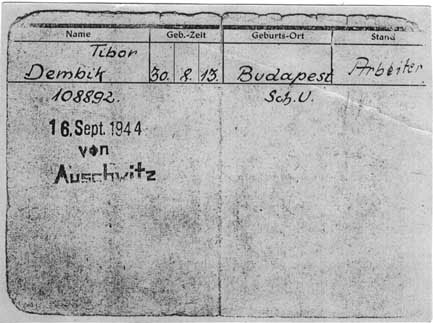 Name Geb.-Zeit Geburts-Ort Stand
Tibor
Dembik 30. 8. 13. Budapest Arbeiter
108892. Sch. U.
16. Sept. 1944
von
Auschwitz